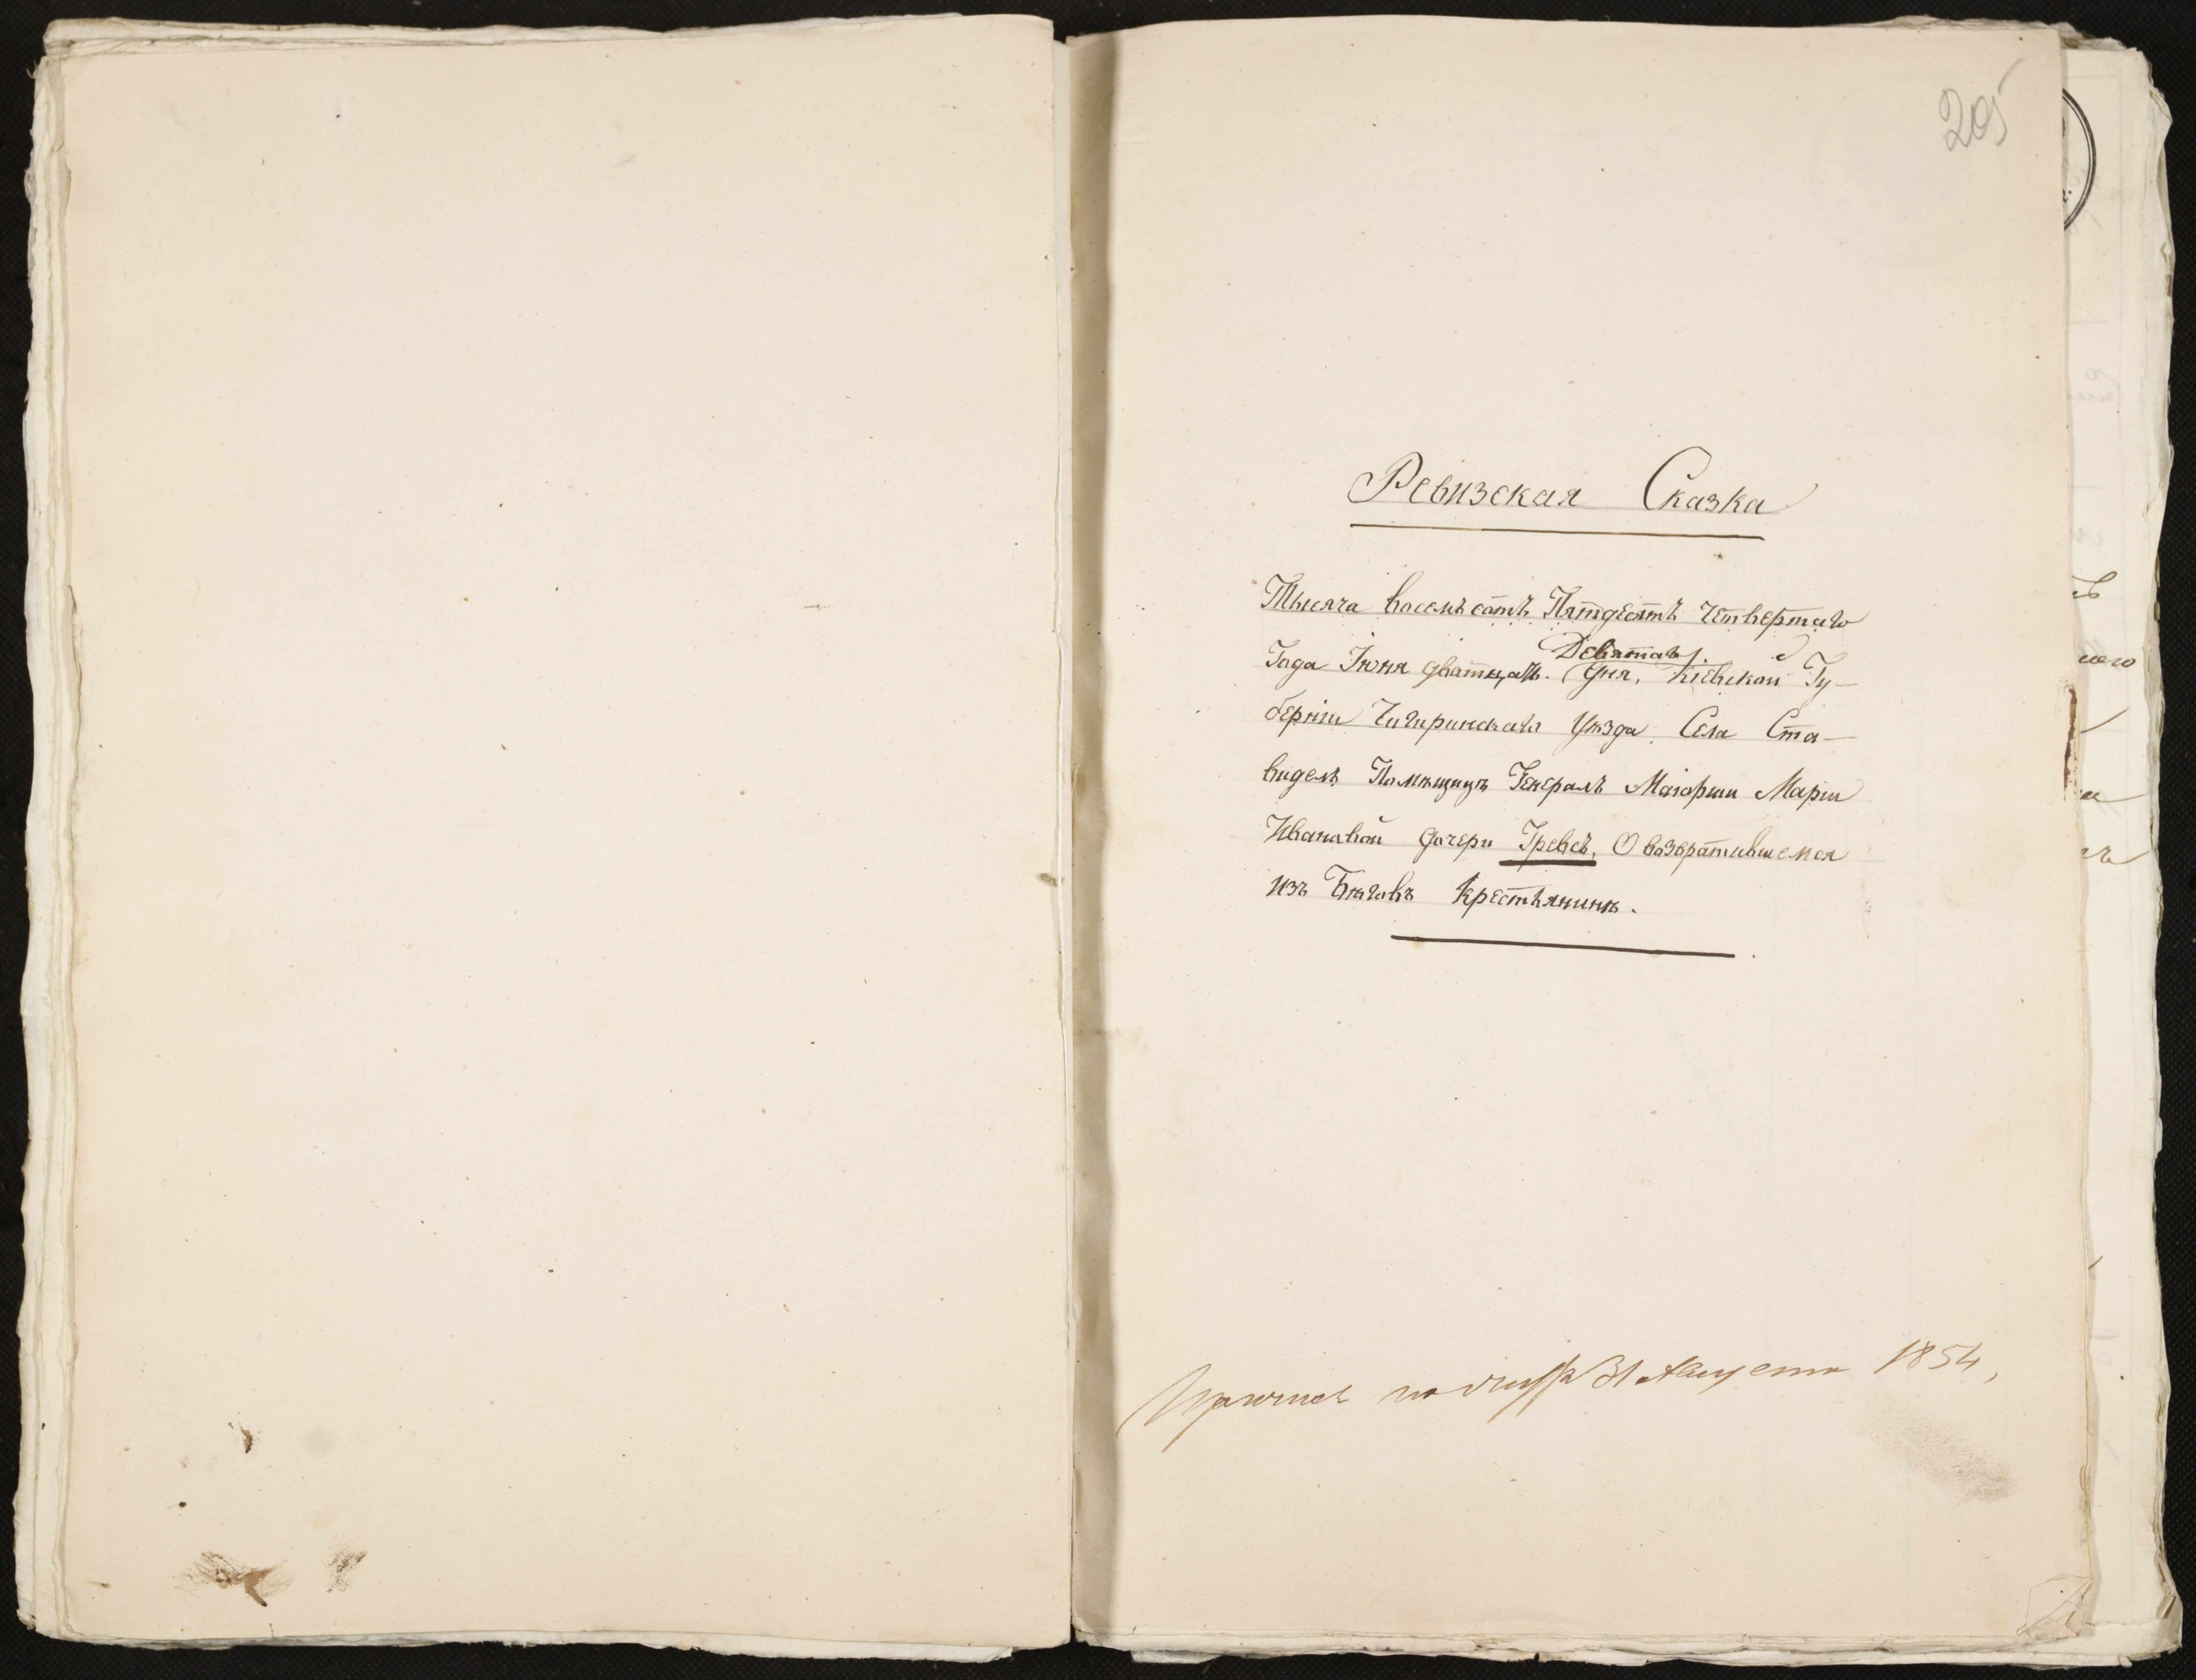 205
Ревизская Сказка
Тысяча восемьсотъ Пятдесятъ четвертаго
Девятаго
Года Іюня дватцать. Дня, Кіевской Гу–
берніи Чигиринскаго Уѣзда Села Ста–
видель Помѣщицѣ Генералъ Маіорши Маріи
Ивановой дочери Гревсъ, О возвратившемся
изъ Бѣговъ Крестьянинѣ.
31 Августа 1854,